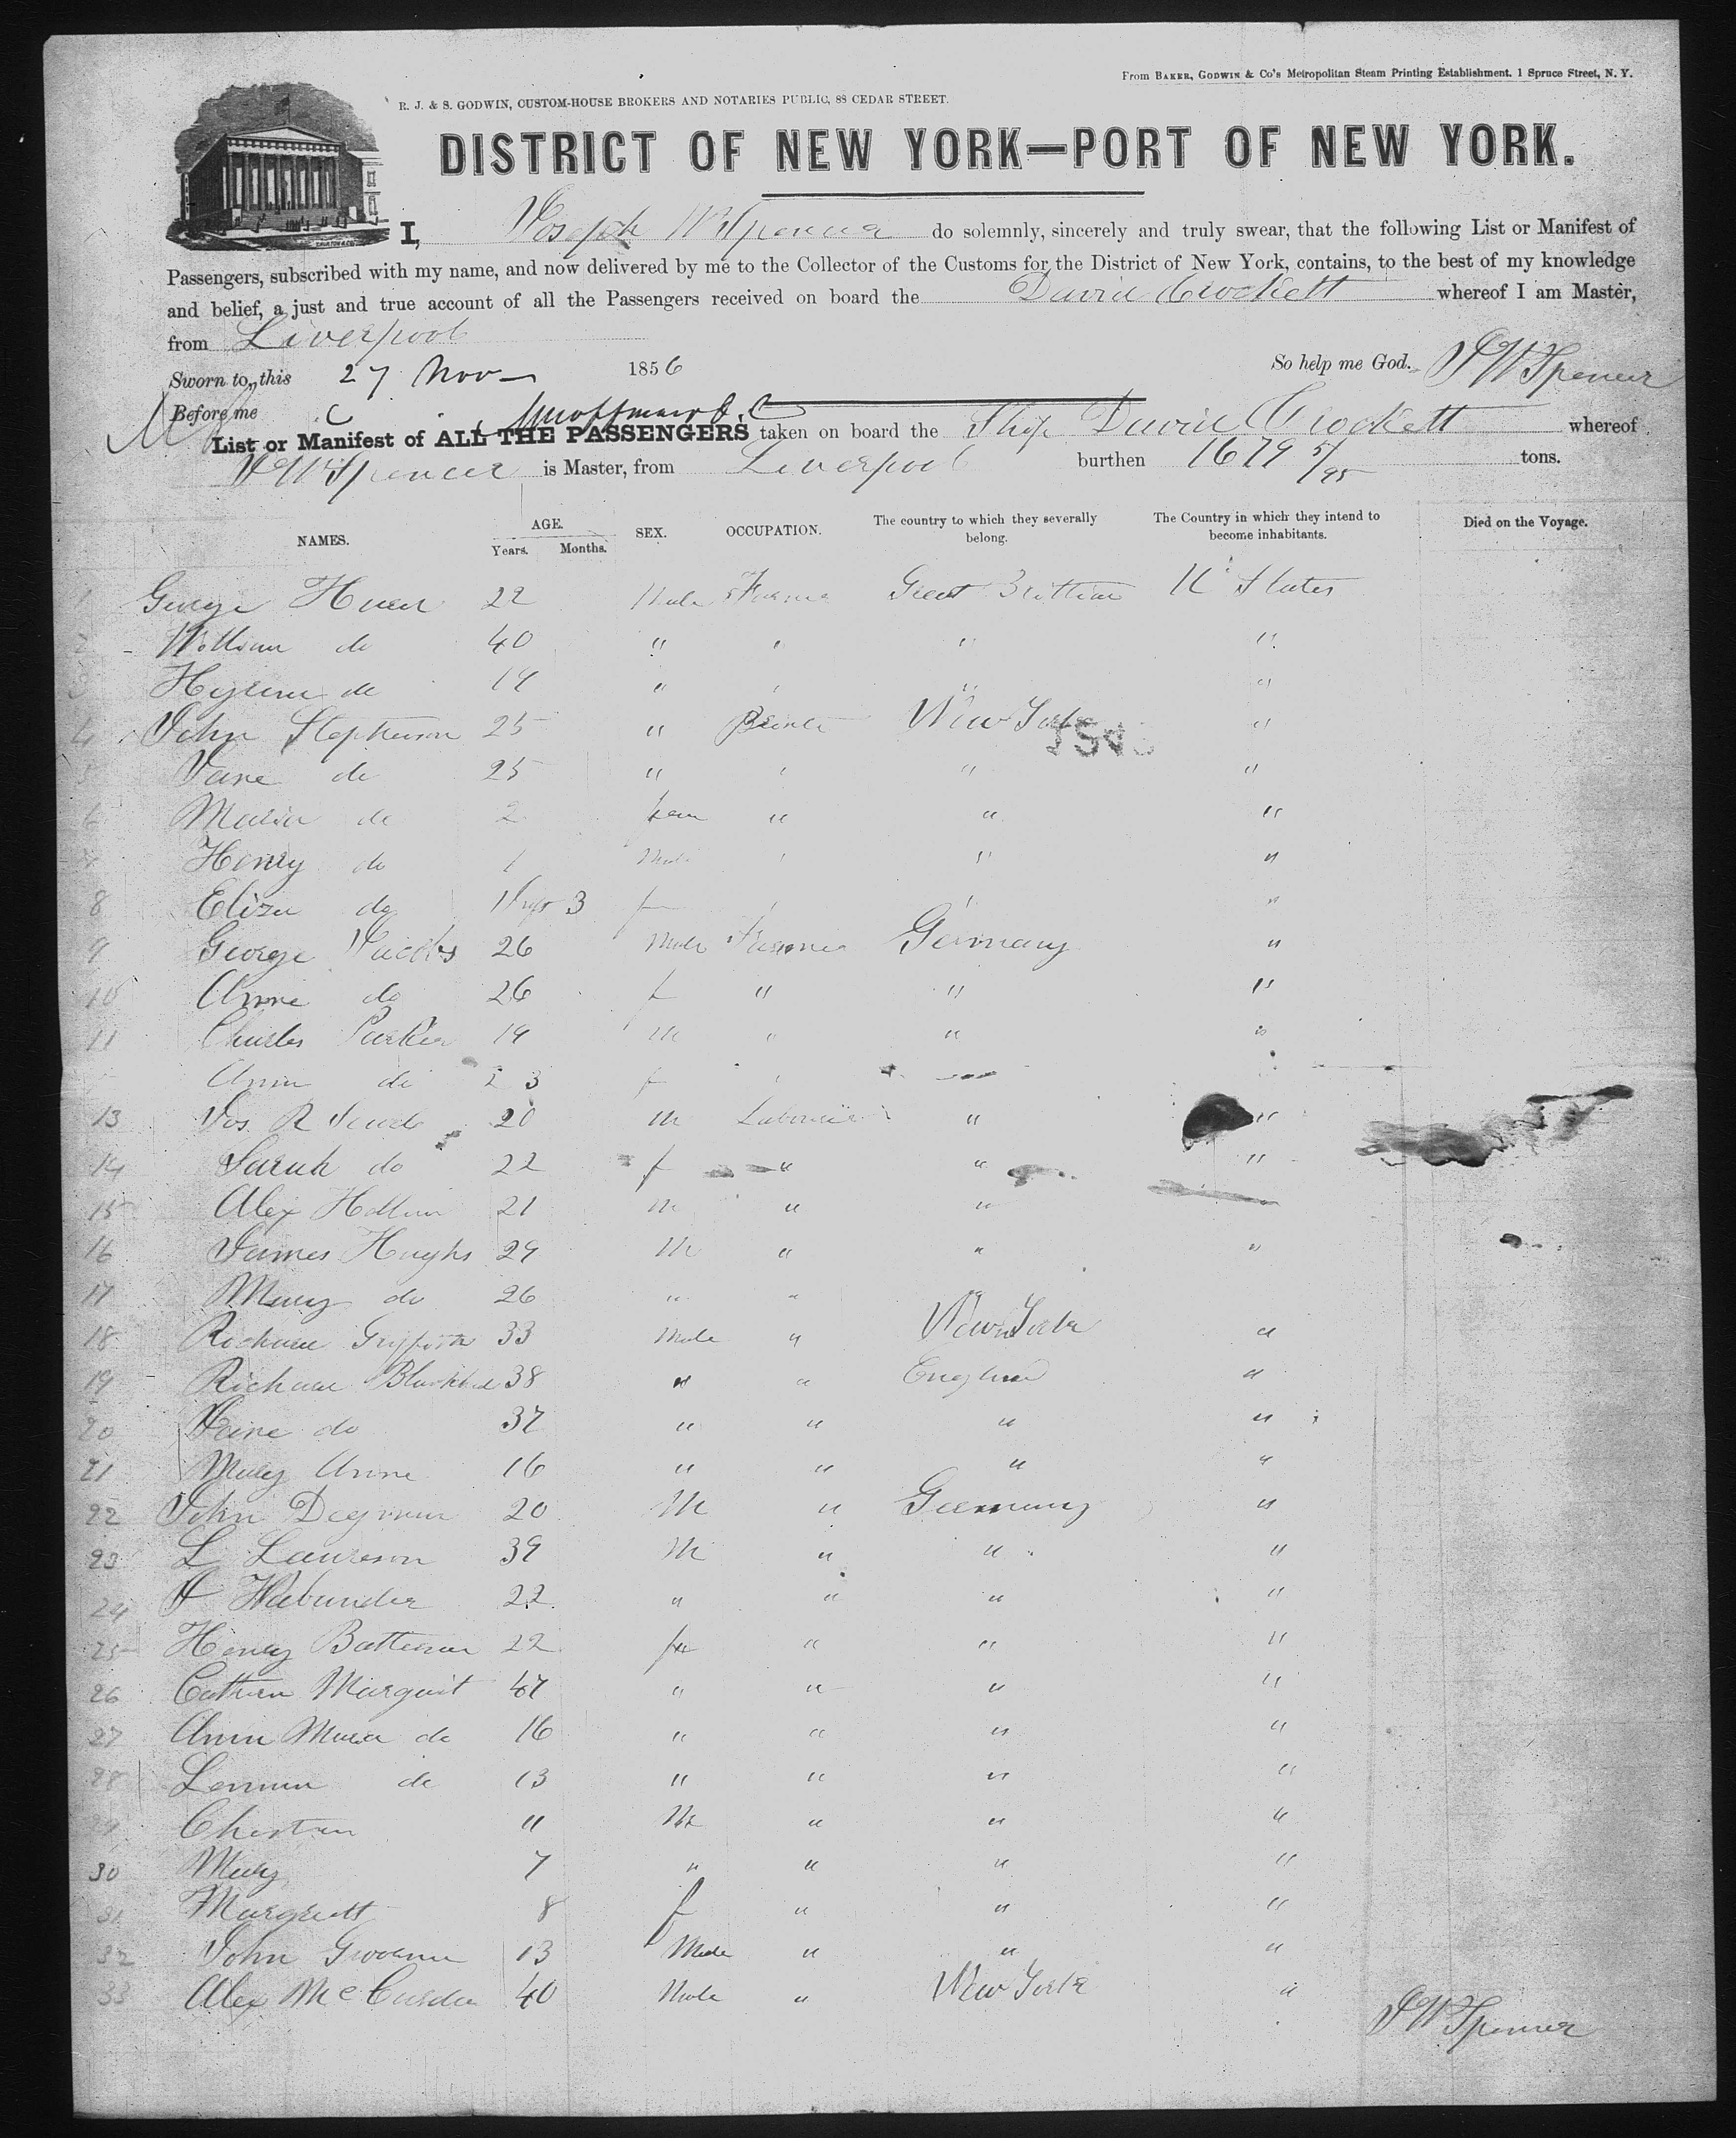 From BAKER, GODWIN & Co's Metropolitan Steam Printing Establishment. 1 Spruce Street, N. Y.
R. J. & S. GODWIN, CUSTOM-HOUSE BROKERS AND NOTARIES PUBLIC, 88 CEDAR STREET.
DISTRICT OF NEW YORK—PORT OF NEW YORK.
I, Joseph W Spencer do solemnly, sincerely and truly swear, that the following List or Manifest of
Passengers, subscribed with my name, and now delivered by me to the Collector of the Customs for the District of New York, contains, to the best of my knowledge
and belief, a just and true account of all the Passengers received on board the David Crockett whereof I am Master,
from Liverpool
Sworn to, this 27 Nov 1856 So help me God. J W Spencer
Before me
List or Manifest of ALL THE PASSENGERS taken on board the Ship David Crockett whereof
J W Spencer is Master, from Liverpool burthen 1679 5/95 tons.
NAMES. AGE. SEX. OCCUPATION. The country to which they severally belong. The Country in which they intend to become inhabitants. Died on the Voyage.
Years. Months.
1 George 22 Male Great Brittian U States
2 William do 40 " " " "
3 do 19 " " " "
4 John Stephenson 25 " New York "
5 Jane do 25 " " " "
6 Maria do 2 fem " " "
7 Henry do 1 Male " " "
8 Eliza do 3 f " " "
9 George Jacobs 26 Male Germany "
10 Anne do 26 f " " "
11 Charles Parker 19 M " " "
Ann do 23 f "
13 Jos R 20 M Labourer " "
14 Sarah do 22 f " " "
15 Alex 21 M " " "
16 James Hughs 29 M " " "
17 Mary do 26 " "
18 Richard Griffith 33 Male " New York "
19 Richard 38 " " England "
20 Jane do 37 " " " "
21 Mary Anne 16 " " " "
22 John 20 M " Germany "
23 L Laureson 39 M " " "
24 22 " " " "
25 Henry 22 " " "
26 Marguit 47 " " " "
27 Ann Maria do 16 " " " "
28 do 13 " " " "
29 " " " "
30 Mary 7 " " " "
31 Margrett 8 f " " "
32 John 13 Male " " "
33 Alex 40 Male " New York "
J W Spencer